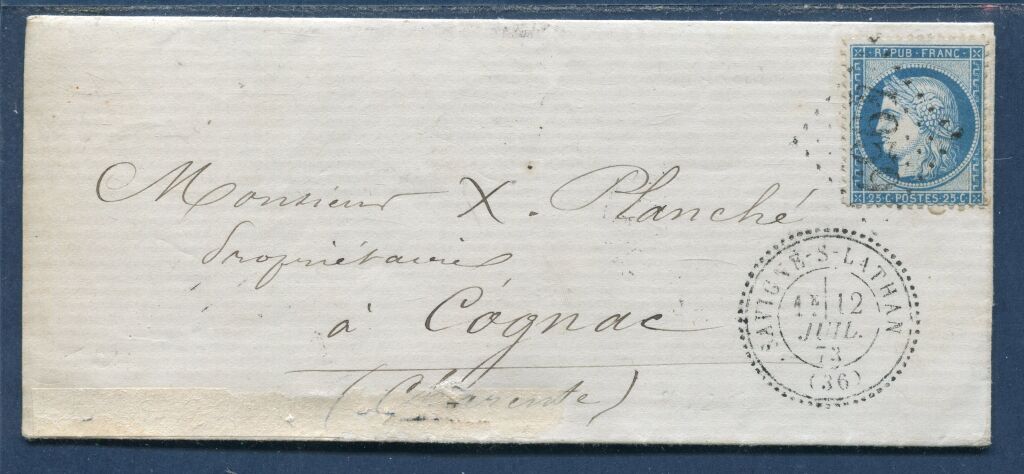 REPUB·FRANC·
25·C·POSTES·25·C
Monsieur X. Planché
Propriétaire
à Cognac
(Charente)
SAVIGNÉ-S-LATHAN
12
JUIL.
73
(36)